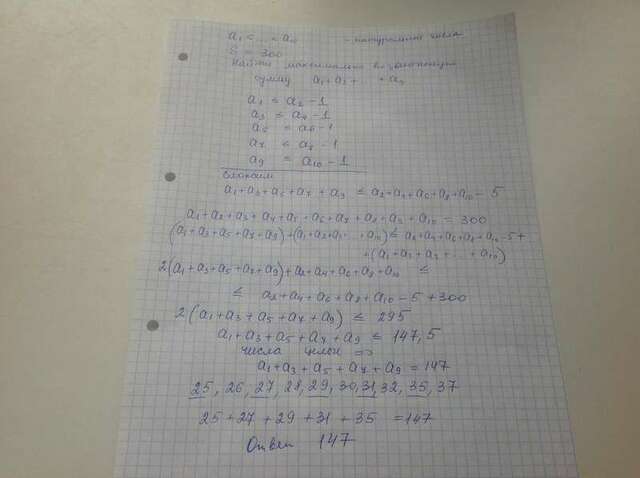 a₁ < ... < a₁₀ - натуральные числа
S = 300
Найти максимально возможную
сумму a₁ + a₃ + ... + a₉
a₁ ≤ a₂ - 1
a₃ ≤ a₄ - 1
a₅ ≤ a₆ - 1
a₇ ≤ a₈ - 1
a₉ ≤ a₁₀ - 1
Сложим
a₁ + a₃ + a₅ + a₇ + a₉ ≤ a₂ + a₄ + a₆ + a₈ + a₁₀ - 5
a₁ + a₂ + a₃ + a₄ + a₅ + a₆ + a₇ + a₈ + a₉ + a₁₀ = 300
(a₁ + a₃ + a₅ + a₇ + a₉) + (a₁ + a₂ + a₃ + ... + a₁₀) ≤ a₂ + a₄ + a₆ + a₈ + a₁₀ - 5 +
+ (a₁ + a₂ + a₃ + ... + a₁₀)
2(a₁ + a₃ + a₅ + a₇ + a₉) + a₂ + a₄ + a₆ + a₈ + a₁₀ ≤
≤ a₂ + a₄ + a₆ + a₈ + a₁₀ - 5 + 300
2(a₁ + a₃ + a₅ + a₇ + a₉) ≤ 295
a₁ + a₃ + a₅ + a₇ + a₉ ≤ 147,5
числа целые =>
a₁ + a₃ + a₅ + a₇ + a₉ = 147
25, 26, 27, 28, 29, 30, 31, 32, 35, 37
25 + 27 + 29 + 31 + 35 = 147
Ответ 147